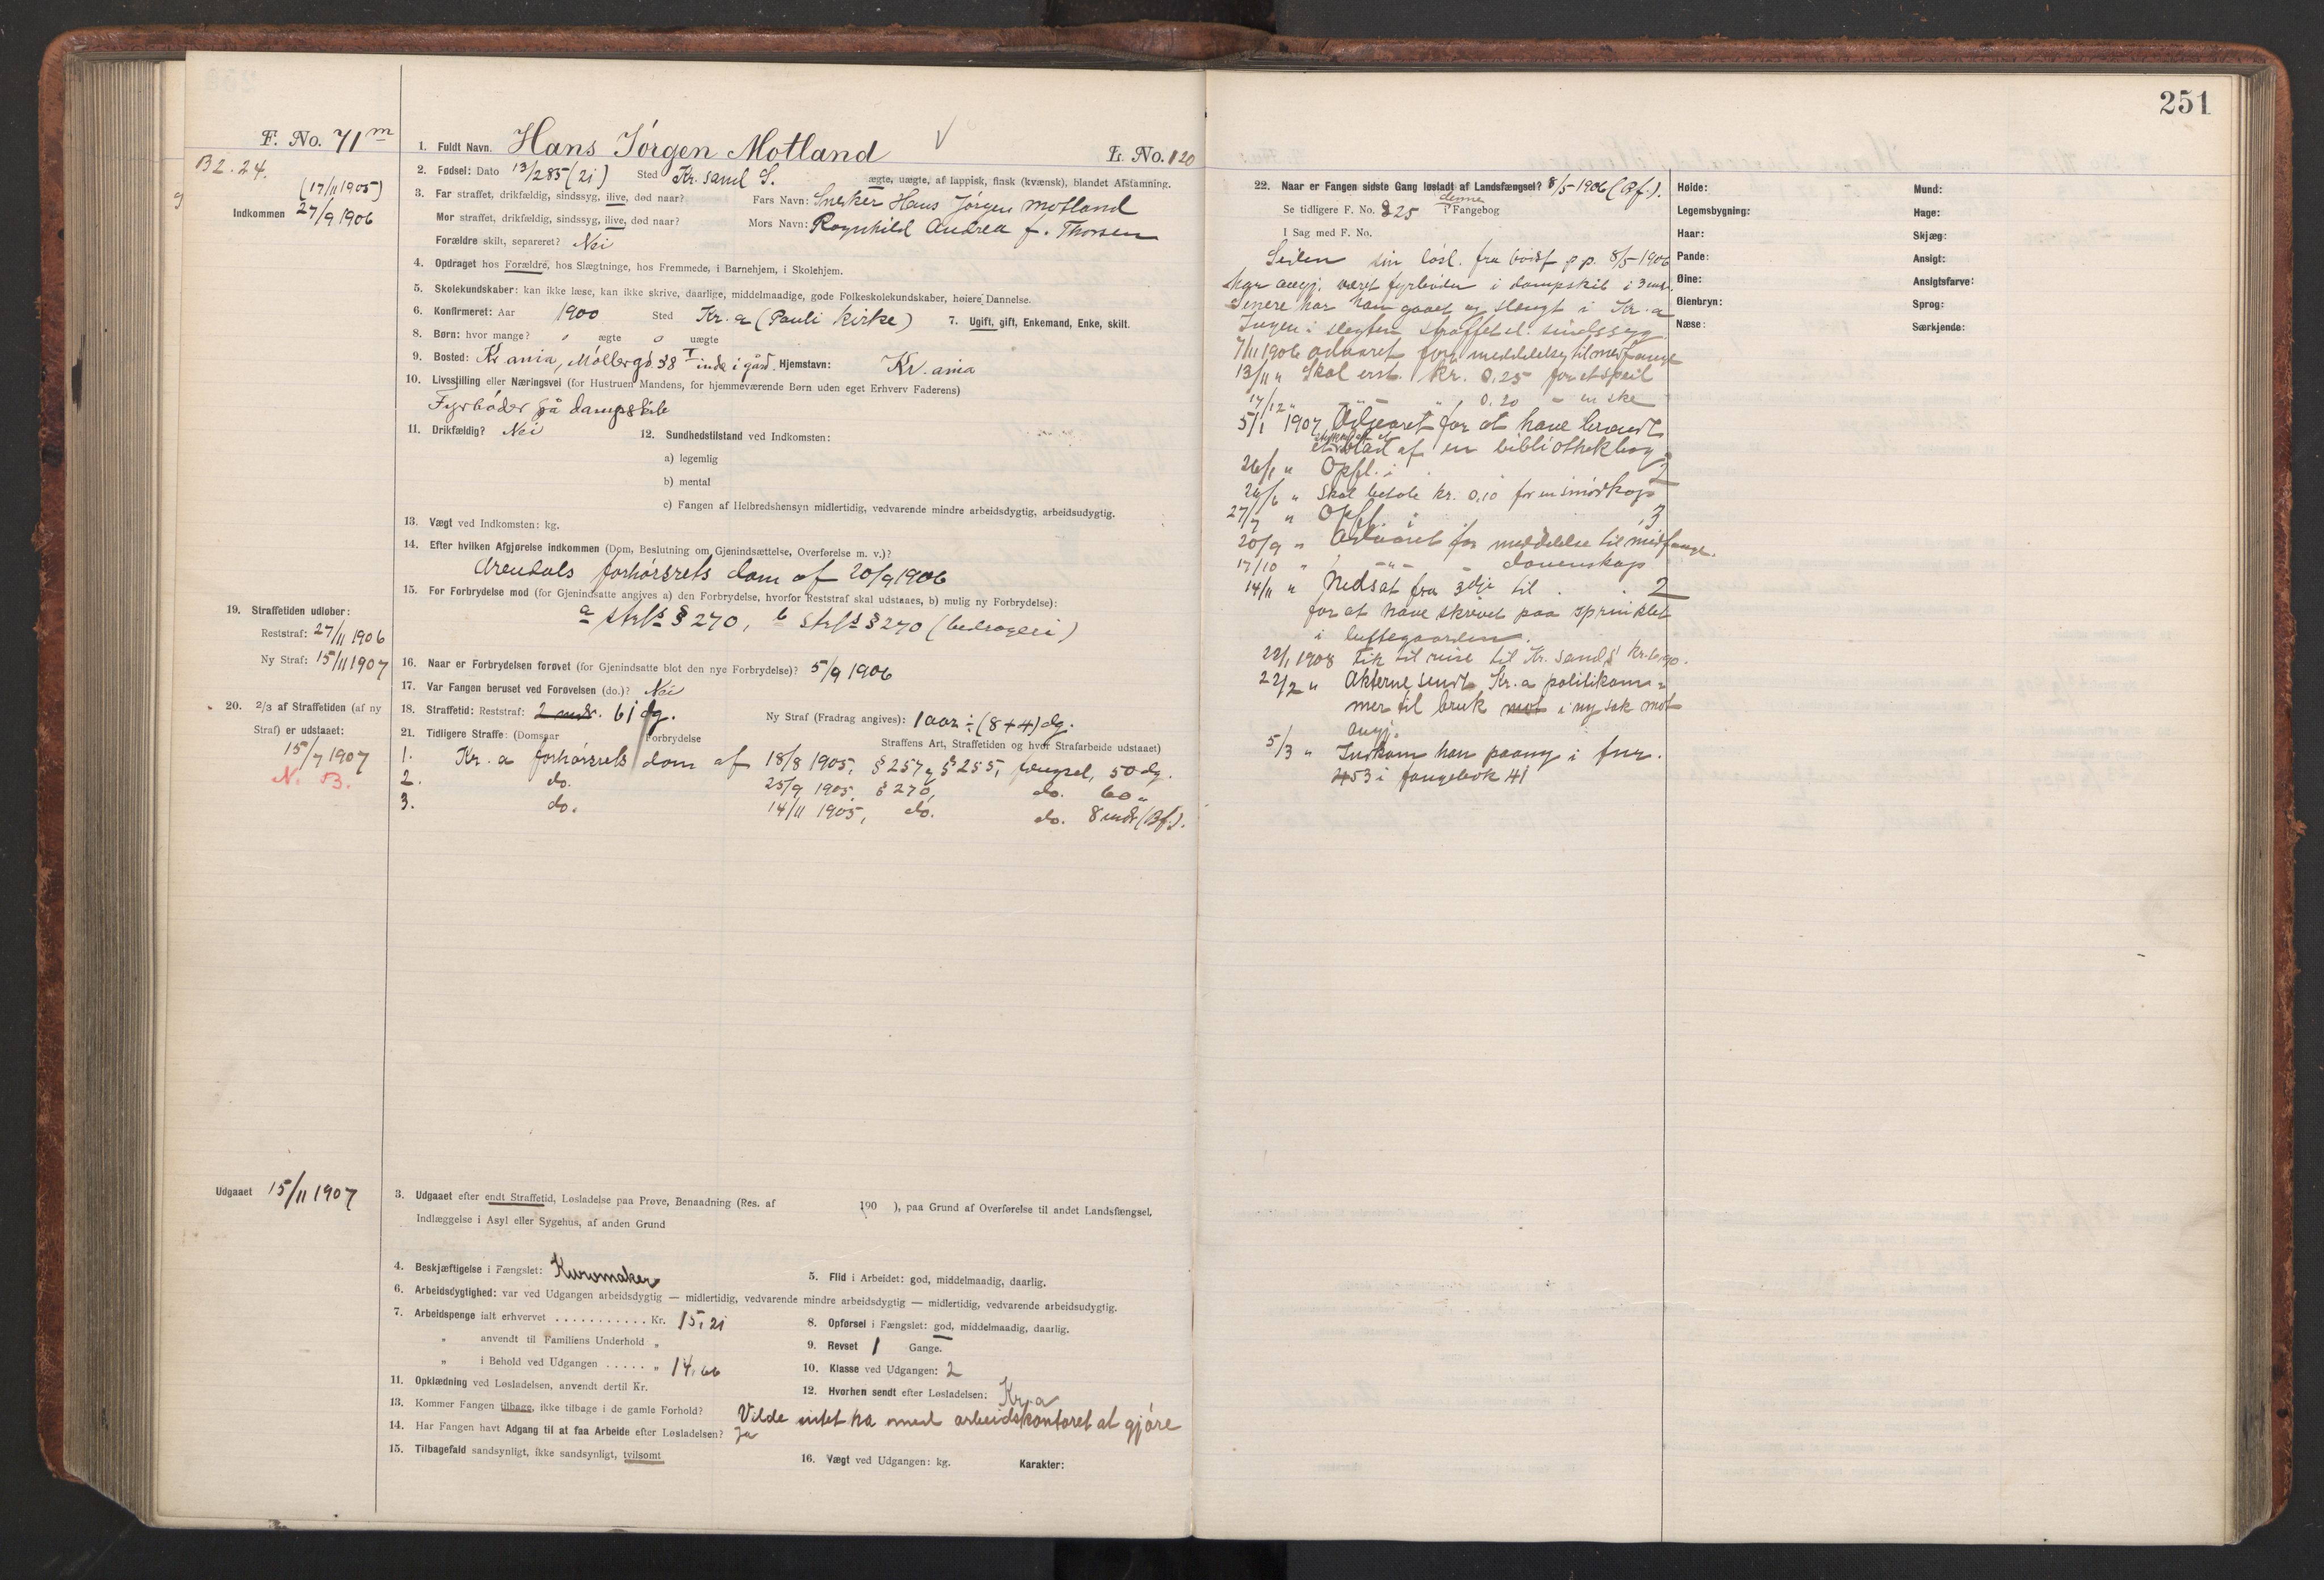 F. No. 71 m
B 2. 24.
(17/11 1905)
Indkommen 27/9 1906
1. Fuldt Navn. Hans Jórgen Motland
L. No. 120
2. Fødsel: Dato 13/2 85 (21) Sted Kr. sand S. ægte, uægte, af lappisk, finsk (kvænsk), blandet Afstamning.
3. Far straffet, drikfældig, sindssyg, ilive, død naar? Fars Navn: Snekker Hans Jørgen Motland
Mor straffet, drikfældig, sindssyg, ilive, død naar? Mors Navn: Ragnhild Andrea f. Thorsen
Forældre skilt, separeret? Nei
4. Opdraget hos Forældre, hos Slægtninge, hos Fremmede, i Barnehjem, i Skolehjem.
5. Skolekundskaber: kan ikke læse, kan ikke skrive, daarlige, middelmaadige, gode Folkeskolekundskaber, høiere Dannelse.
6. Konfirmeret: Aar 1900 Sted Kr. a (Pauli kirke) 7. Ugift, gift, Enkemand, Enke, skilt.
8. Børn: hvor mange? o ægte o uægte
9. Bosted: Kr ania, Móllergd. 38 I inde i gård. Hjemstavn: Kr. ania
10. Livsstilling eller Næringsvei (for Hustruen Mandens, for hjemmeværende Børn uden eget Erhverv Faderens)
Fyrbóder på dampskib
11. Drikfældig? Nei 12. Sundhedstilstand ved Indkomsten:
a) legemlig
b) mental
c) Fangen af Helbredshensyn midlertidig, vedvarende mindre arbeidsdygtig, arbeidsudygtig.
13. Vægt ved Indkomsten: kg.
14. Efter hvilken Afgjørelse indkommen (Dom, Beslutning om Gjenindsættelse, Overførelse m. v.)?
Arendals forhórsrets dom af 20/9 1906
15. For Forbrydelse mod (for Gjenindsatte angives a) den Forbrydelse, hvorfor Reststraf skal udstaaes, b) mulig ny Forbrydelse):
a strfl § 270, b strfl § 270 (bedrageri)
19. Straffetiden udløber:
Reststraf: 27/11 1906
Ny Straf: 15/11 1907
16. Naar er Forbrydelsen forøvet (for Gjenindsatte blot den nye Forbrydelse)? 5/9 1906
17. Var Fangen beruset ved Forøvelsen (do.)? Nei
20. 2/3 af Straffetiden (af ny
Straf) er udstaaet:
15/7 1907
N. 53.
18. Straffetid: Reststraf: 2 mdr. 61 dg. Ny Straf (Fradrag angives): 1 aar ÷ (8+4) dg.
21. Tidligere Straffe: (Domsaar Forbrydelse Straffens Art, Straffetiden og hvor Strafarbeide udstaaet)
1. Kr. a forhórsrets dom af 18/8 1905, § 257 & § 255, fængsel, 50 dg.
2. do. 25/9 1905, § 270, do. 60 "
3. do. 14/11 1905, do. do. 8 mdr (Bf.).
Udgaaet 15/11 1907
3. Udgaaet efter endt Straffetid, Løsladelse paa Prøve, Benaadning (Res. af 190 ), paa Grund af Overførelse til andet Landsfængsel,
Indlæggelse i Asyl eller Sygehus, af anden Grund
4. Beskjæftigelse i Fængslet: Kurvmaker 5. Flid i Arbeidet: god, middelmaadig, daarlig.
6. Arbeidsdygtighed: var ved Udgangen arbeidsdygtig — midlertidig, vedvarende mindre arbeidsdygtig — midlertidig, vedvarende arbeidsudygtig.
7. Arbeidspenge ialt erhvervet . . . . . . . . . . . Kr. 15,21 8. Opførsel i Fængslet: god, middelmaadig, daarlig.
" anvendt til Familiens Underhold " 9. Revset 1 Gange.
" i Behold ved Udgangen . . . . . " 14,66 10. Klasse ved Udgangen: 2
11. Opklædning ved Løsladelsen, anvendt dertil Kr. 12. Hvorhen sendt efter Løsladelsen: Kr.a
13. Kommer Fangen tilbage, ikke tilbage i de gamle Forhold? Vilde intet ha med arbeidskontoret at gjóre
14. Har Fangen havt Adgang til at faa Arbeide efter Løsladelsen? Ja
15. Tilbagefald sandsynligt, ikke sandsynligt, tvilsomt 16. Vægt ved Udgangen: kg. Karakter:
251
22. Naar er Fangen sidste Gang løsladt af Landsfængsel? 8/5 1906 (Bf.).
Se tidligere F. No. 225 i denne Fangebog
I Sag med F. No.
Siden sin løsl. fra bodsf p.p. 8/5 1906
har angj. været fyrbøder i dampskib i 3 mdr.
Senere har han gaaet og slængt i Kr.a
Ingen i slegten straffet el. sindssyg
7/11 1906 advaret for meddelelse til medfange
13/11 " Skal erst. Kr. 0,25 for et speil
17/12 " " " 0,20 - en ske
5/1 1907 Advaret for at have
blad af en bibliothekbog
26/1 " Opfl. i 2
26/6 " Skal betale kr. 0,10 for en smørkop
27/7 " Opfl. i 3
20/9 " Advaret for meddelelse til medfange.
17/10 " - " - dovenskap
14/11 " Nedsat fra 3dje til . . 2
for at have skrevet paa sprinklet
i luftegaarden.
22/1 1908 Fik til reise til Kr. sand S
22/2 " Akterne sendt Kr.a politikam=
mer til bruk mot i ny sak mot
angj.
5/3 " Indkom han paany i fnr.
453 i fangebok 41
Høide:
Legemsbygning:
Haar:
Pande:
Øine:
Øienbryn:
Næse:
Mund:
Hage:
Skjæg:
Ansigt:
Ansigtsfarve:
Sprog:
Særkjende: